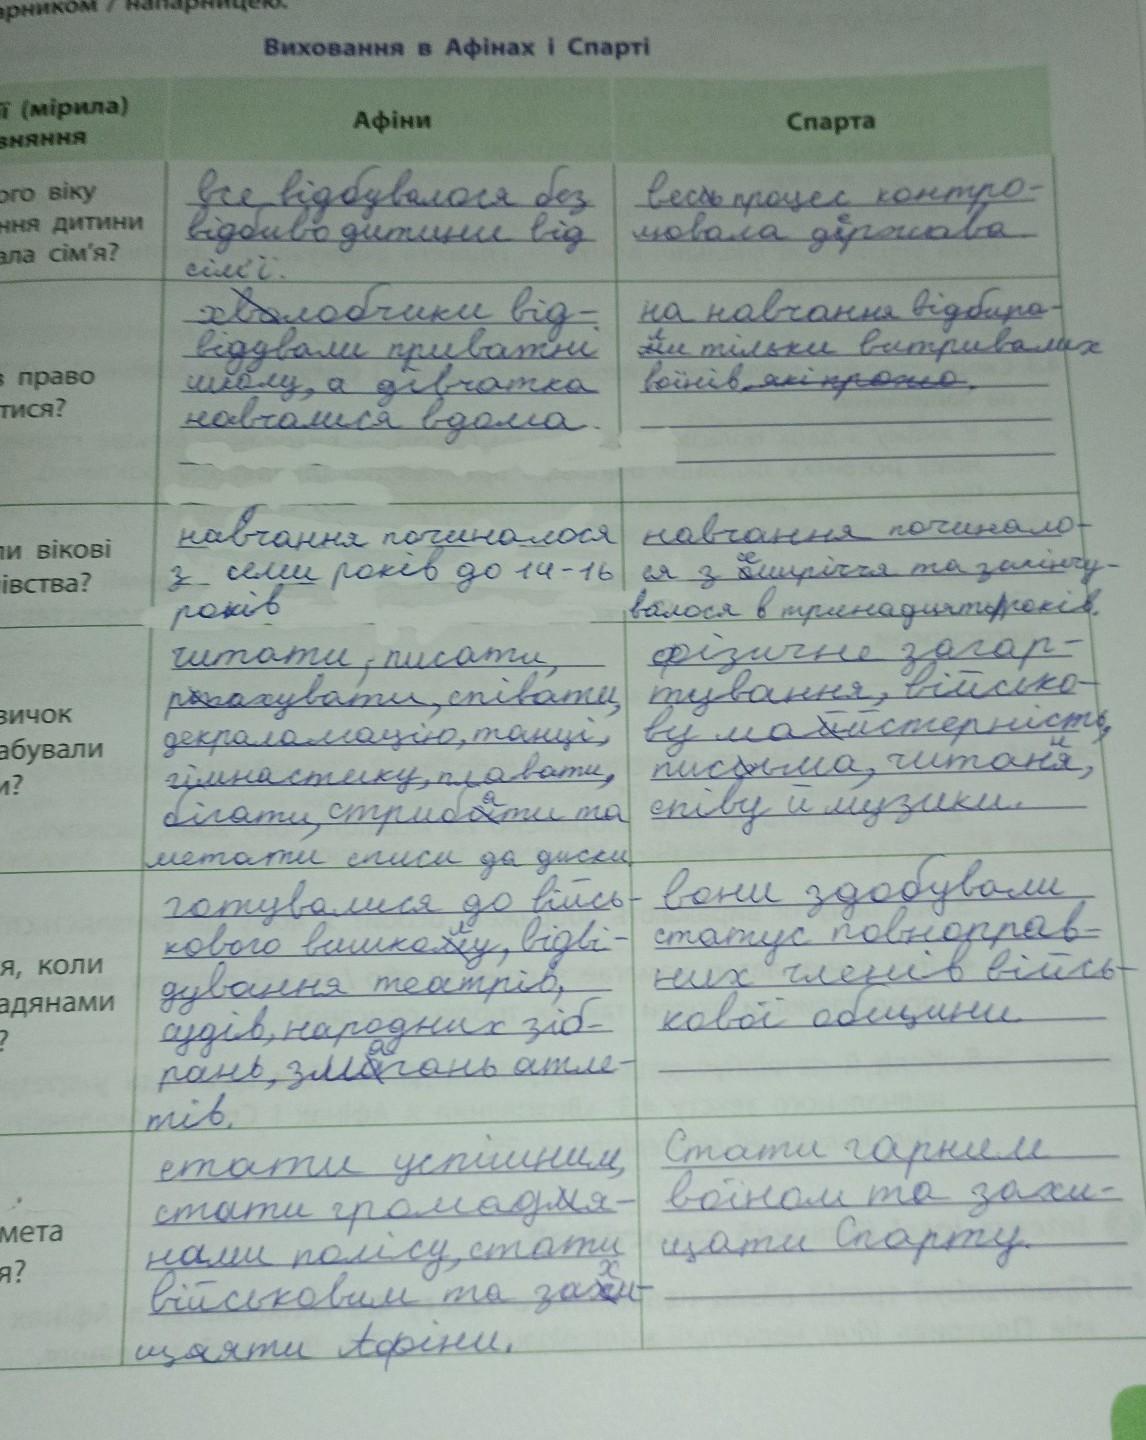 арником / напарницею.
Виховання в Афінах і Спарті
ії (мірила)
вняння
Афіни
Спарта
ого віку
ння дитини
ала сім'я?
все відбувалося без
відбиво дитини від
сім'ї.
весь процес контро-
лювала держава
в право
тися?
хлобчики від-
віддвали приватні
школу, а дівчатка
навчалися вдома.
на навчання відбира-
ли тільки витривалих
воїнів
ли вікові
івства?
навчання починалося
з семи років до 14-16
років
навчання починало-
ся з семиріччя та закінчу-
валося в тринадцять років.
вичок
абували
и?
читати, писати,
рахувати, співати,
декраламацію, танці,
гімнастику, плавати,
бігати, стрибати та
метати списи да диски
фізичне загар-
тування, військо-
ву майстерність,
письма, читаня,
співу й музики.
я, коли
адянами
?
готувалися до війсь-
кового вишколу, відві-
дування театрів,
судів, народних зіб-
рань, змагань атле-
тів.
вони здобували
статус повноправ-
них членів війсь-
кової общини.
мета
я?
стати успішним,
стати громадя-
нами полісу, стати
військовим та захи-
щаяти Афіни.
Стати гарним
воїном та захи-
щати Спарту.